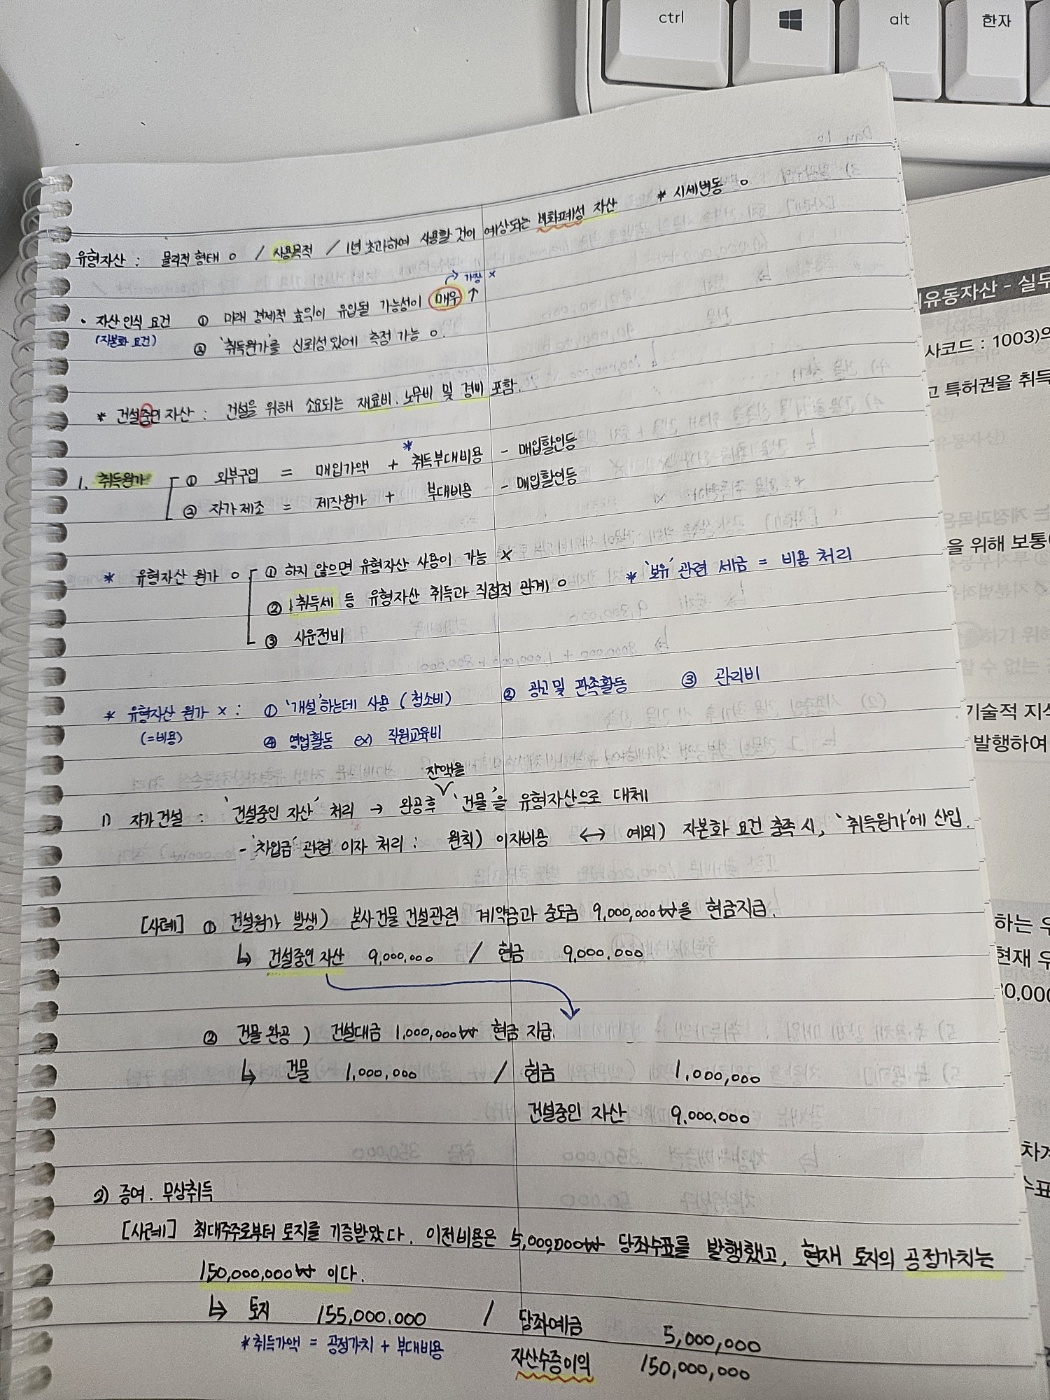 ctrl
alt
한자
유형자산 : 물리적 형태 o / 사용목적 / 1년 초과하여 사용할 것이 예상되는 비화폐성 자산 * 시세변동 o
→ 가장 x
• 자산인식 요건 ① 미래 경제적 효익이 유입될 가능성이 매우 ↑
(자본화 요건) ② '취득원가'를 신뢰성있에 측정 가능 o.
* 건설중인 자산 : 건설을 위해 소요되는 재료비. 노무비 및 경비 포함.
1. 취득원가 ① 외부구입 = 매입가액 + *취득부대비용 - 매입할인등
② 자가제조 = 제작원가 + 부대비용 - 매입할인등
* 유형자산 원가 o ① 하지 않으면 유형자산 사용이 가능 x
② 취득세 등 유형자산 취득과 직접적 관계 o * '보유' 관련 세금 = 비용 처리
③ 시운전비
* 유형자산 원가 x : ① '개설'하는데 사용 (청소비) ② 광고 및 판촉활동 ③ 관리비
(=비용) ④ 영업활동 ex) 직원교육비
잔액을
1) 자가건설 : '건설중인 자산' 처리 → 완공후 '건물'을 유형자산으로 대체
- '차입금' 관련 이자 처리 : 원칙) 이자비용 ↔ 예외) 자본화 요건 충족 시, '취득원가'에 산입.
[사례] ① 건설원가 발생) 본사건물 건설관련 계약금과 중도금 9,000,000₩을 현금지급.
↳ 건설중인 자산 9,000,000 / 현금 9,000,000
② 건물 완공) 건설대금 1,000,000₩ 현금 지급.
↳ 건물 1,000,000 / 현금 1,000,000
건설중인 자산 9,000,000
2) 증여. 무상취득
[사례] 최대주주로부터 토지를 기증받았다. 이전비용은 5,000,000₩ 당좌수표를 발행했고, 현재 토지의 공정가치는
150,000,000₩ 이다.
↳ 토지 155,000,000 / 당좌예금 5,000,000
*취득가액 = 공정가치 + 부대비용 자산수증이익 150,000,000
유동자산 - 실무
사코드 : 1003)의
고 특허권을 취득
는 계정과목은
을 위해 보통
기술적 지식
발행하여
하는 우
현재 우
0,000
차계
수표